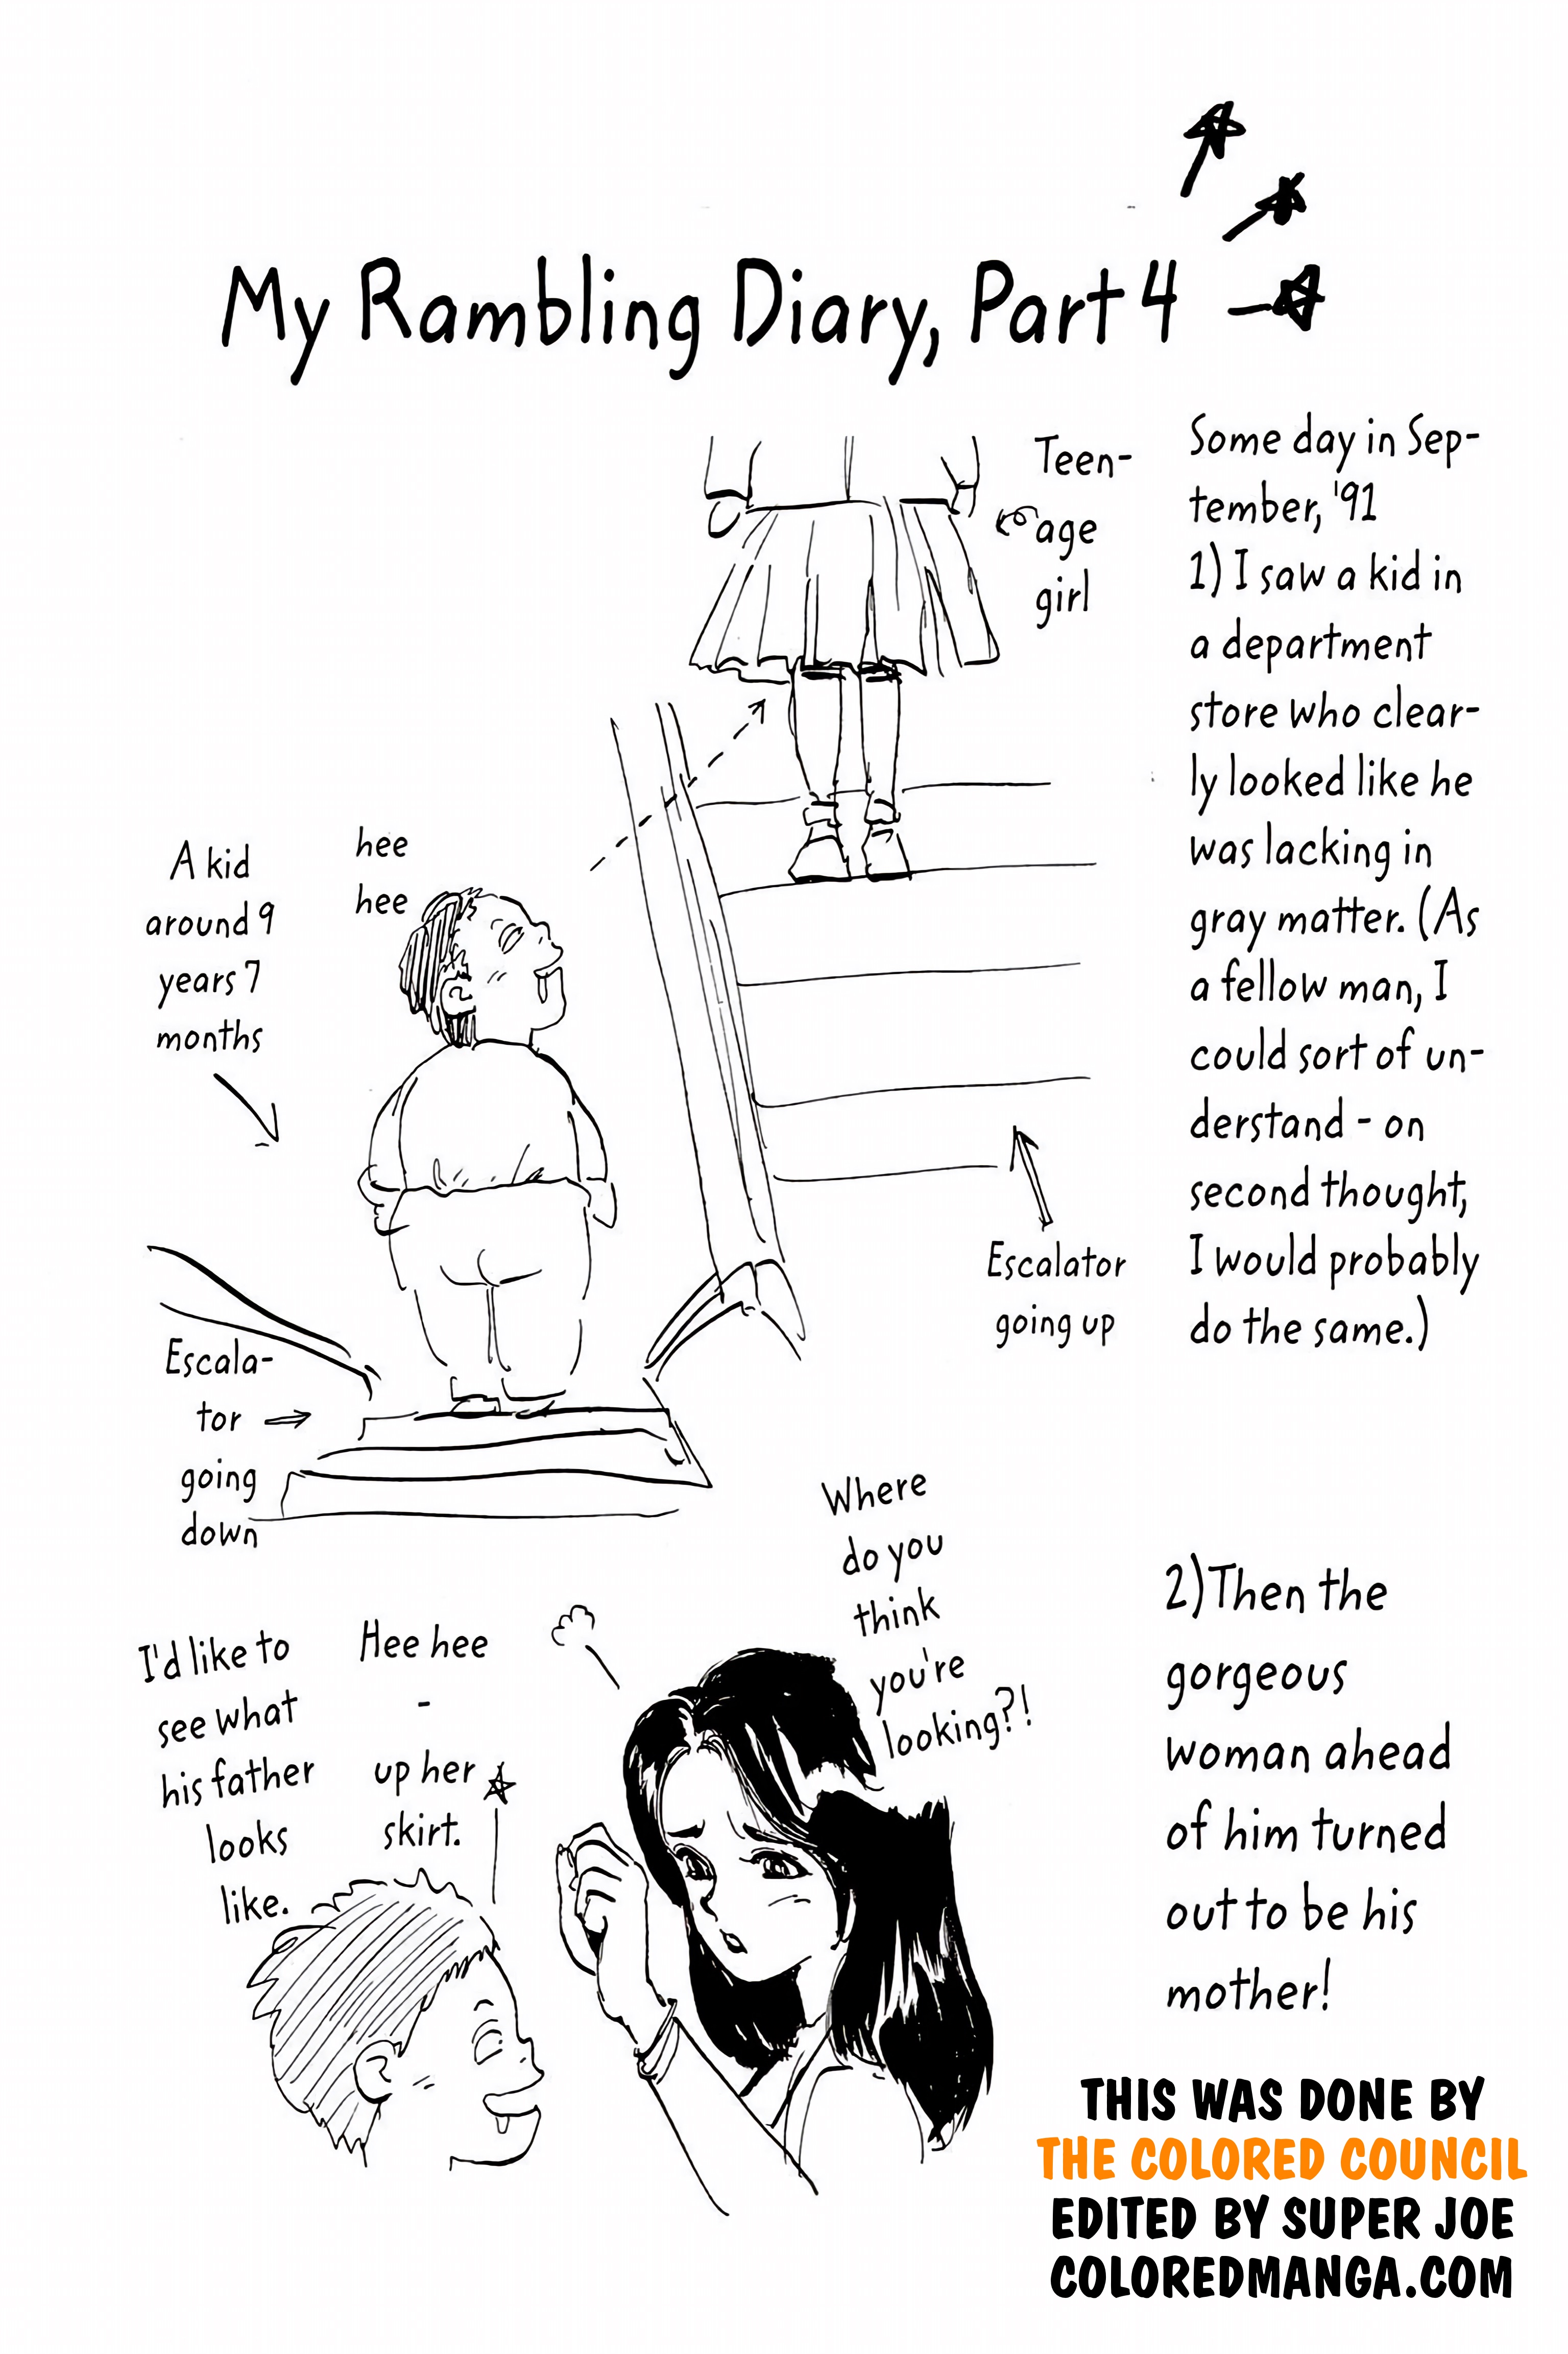 My Rambling Diary, Part 4
Some day in Sep-
tember, '91
1) I saw a kid in
a department
store who clear-
ly looked like he
was lacking in
gray matter. (As
a fellow man, I
could sort of un-
derstand - on
second thought,
I would probably
do the same.)
Teen-
age
girl
hee
hee
A kid
around 9
years 7
months
Escalator
going up
Escala-
tor
going
down
2) Then the
gorgeous
woman ahead
of him turned
out to be his
mother!
Where
do you
think
you're
looking?!
Hee hee
-
up her
skirt.
I'd like to
see what
his father
looks
like.
THIS WAS DONE BY
THE COLORED COUNCIL
EDITED BY SUPER JOE
COLOREDMANGA.COM